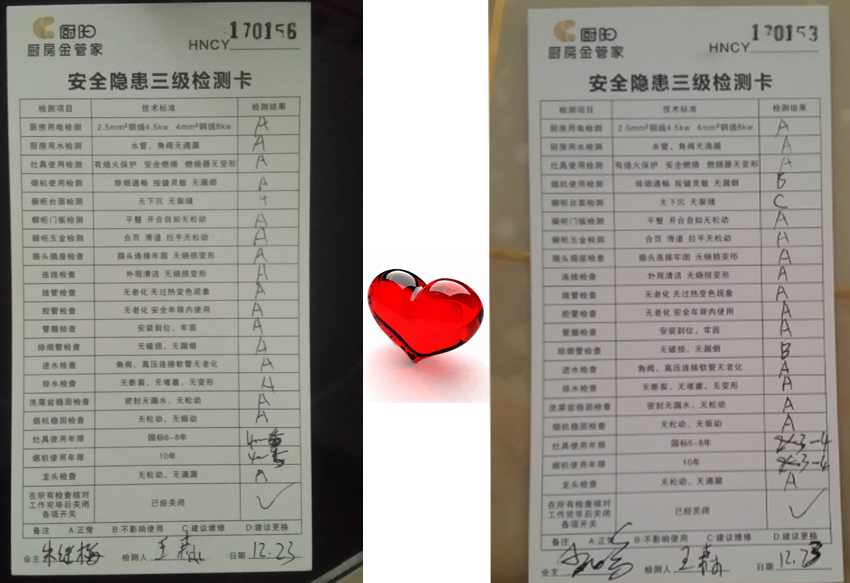 厨阳
厨房金管家
HNCY 170156
安全隐患三级检测卡
检测项目 技术标准 检测结果
厨房用电检测 2.5mm²铜线4.5kw 4mm²铜线8kw A
厨房用水检测 水管、角阀无滴漏 A
灶具使用检测 有熄火保护 安全燃烧 燃烧器无变形 A
烟机使用检测 排烟通畅 按键灵敏 无漏烟 A
橱柜台面检测 无下沉 无裂缝
橱柜门板检测 平整 开合自如无松动 A
橱柜五金检测 合页 滑道 拉手无松动 A
插头插座检查 插头连接牢固 无烧损变形 A
连线检查 外观清洁 无烧损变形 A
线管检查 无老化 无过热变色现象 A
胶管检查 无老化 安全年限内使用 A
管箍检查 安装到位、牢固 A
排烟管检查 无破损、无漏烟 A
进水检查 角阀、高压连接软管无老化 A
排水检查 无断裂、无堵塞、无变形 A
洗菜盆稳固检查 密封无漏水、无松动 A
烟机稳固检查 无松动、无振动 A
灶具使用年限 国标6-8年
烟机使用年限 10年
龙头检查 无松动、无滴漏 A
在所有检查核对
工作完毕后关闭 已经关闭 ✓
各项开关
备注 A:正常 B:不影响使用 C:建议维修 D:建议更换
业主 朱继梅 检测人 王 日期 12.23
厨阳
厨房金管家
HNCY 170153
安全隐患三级检测卡
检测项目 技术标准 检测结果
厨房用电检测 2.5mm²铜线4.5kw 4mm²铜线8kw A
厨房用水检测 水管、角阀无滴漏 A
灶具使用检测 有熄火保护 安全燃烧 燃烧器无变形 A
烟机使用检测 排烟通畅 按键灵敏 无漏烟 B
橱柜台面检测 无下沉 无裂缝 C
橱柜门板检测 平整 开合自如无松动 A
橱柜五金检测 合页 滑道 拉手无松动 A
插头插座检查 插头连接牢固 无烧损变形 A
连线检查 外观清洁 无烧损变形 A
线管检查 无老化 无过热变色现象 A
胶管检查 无老化 安全年限内使用 A
管箍检查 安装到位、牢固 A
排烟管检查 无破损、无漏烟 B
进水检查 角阀、高压连接软管无老化 A
排水检查 无断裂、无堵塞、无变形 A
洗菜盆稳固检查 密封无漏水、无松动 A
烟机稳固检查 无松动、无振动 A
灶具使用年限 国标6-8年 3-4
烟机使用年限 10年 3-4
龙头检查 无松动、无滴漏 A
在所有检查核对
工作完毕后关闭 已经关闭 ✓
各项开关
备注 A:正常 B:不影响使用 C:建议维修 D:建议更换
业主 检测人 王 日期 12.23